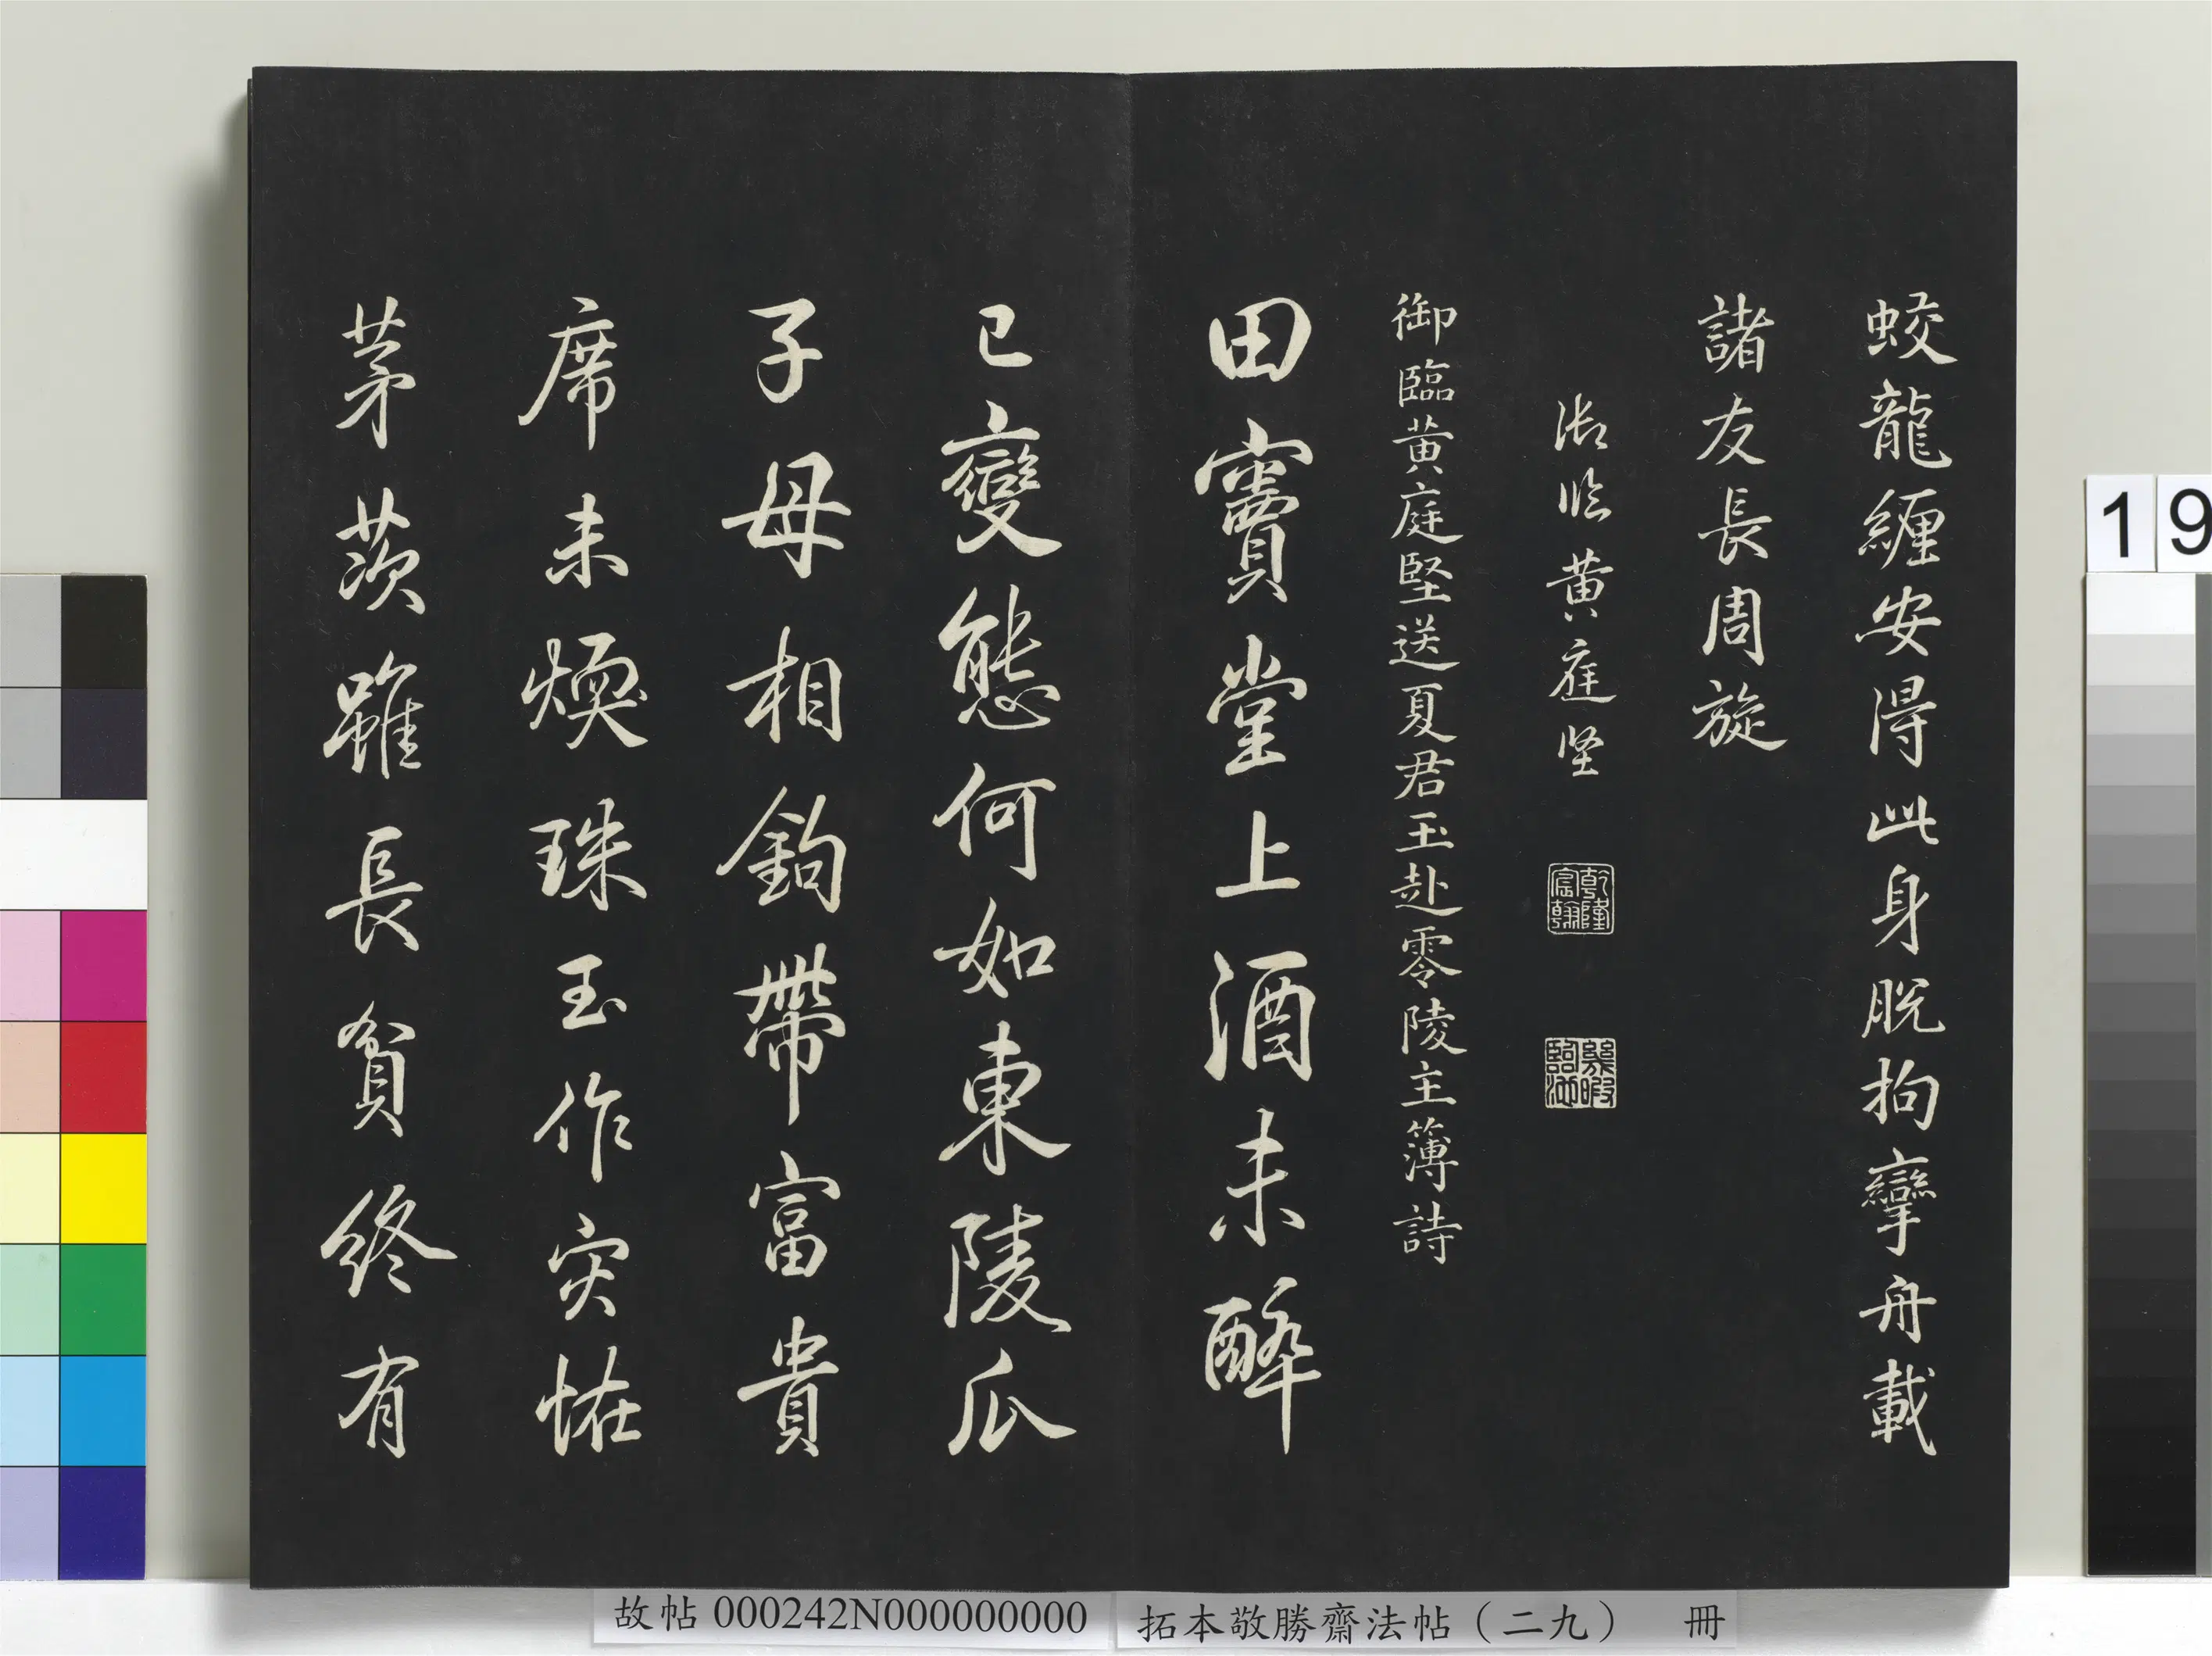 蛟龍纏安得此身脱拘攣舟載
諸友長周旋
御臨黄庭坚
乾隆宸翰
幾暇臨池
御臨黄庭堅送夏君玉赴零陵主簿詩
田竇堂上酒未醉
已變態何如東陵瓜
子母相鉤帶富貴
席未煖珠玉作灾恠
茅茨雖長貧終有
19
故帖000242N000000000
拓本敬勝齋法帖（二九） 冊